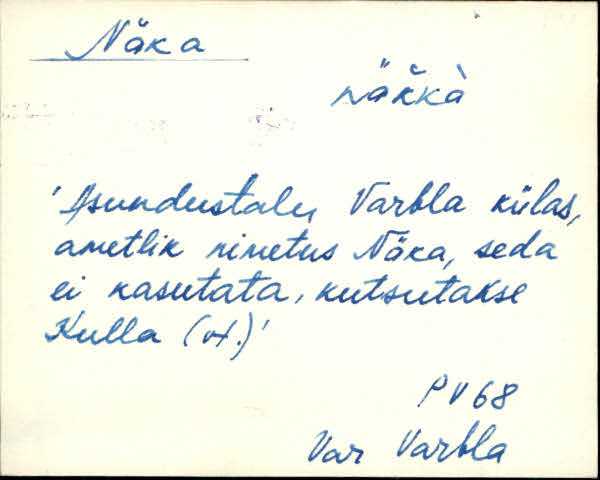 Näka
näkkà
'Asundustalu Varbla külas,
ametlik nimetus Näka, seda
ei kasutata, kutsutakse
Kulla (vt.)'
PV68
Var Varbla